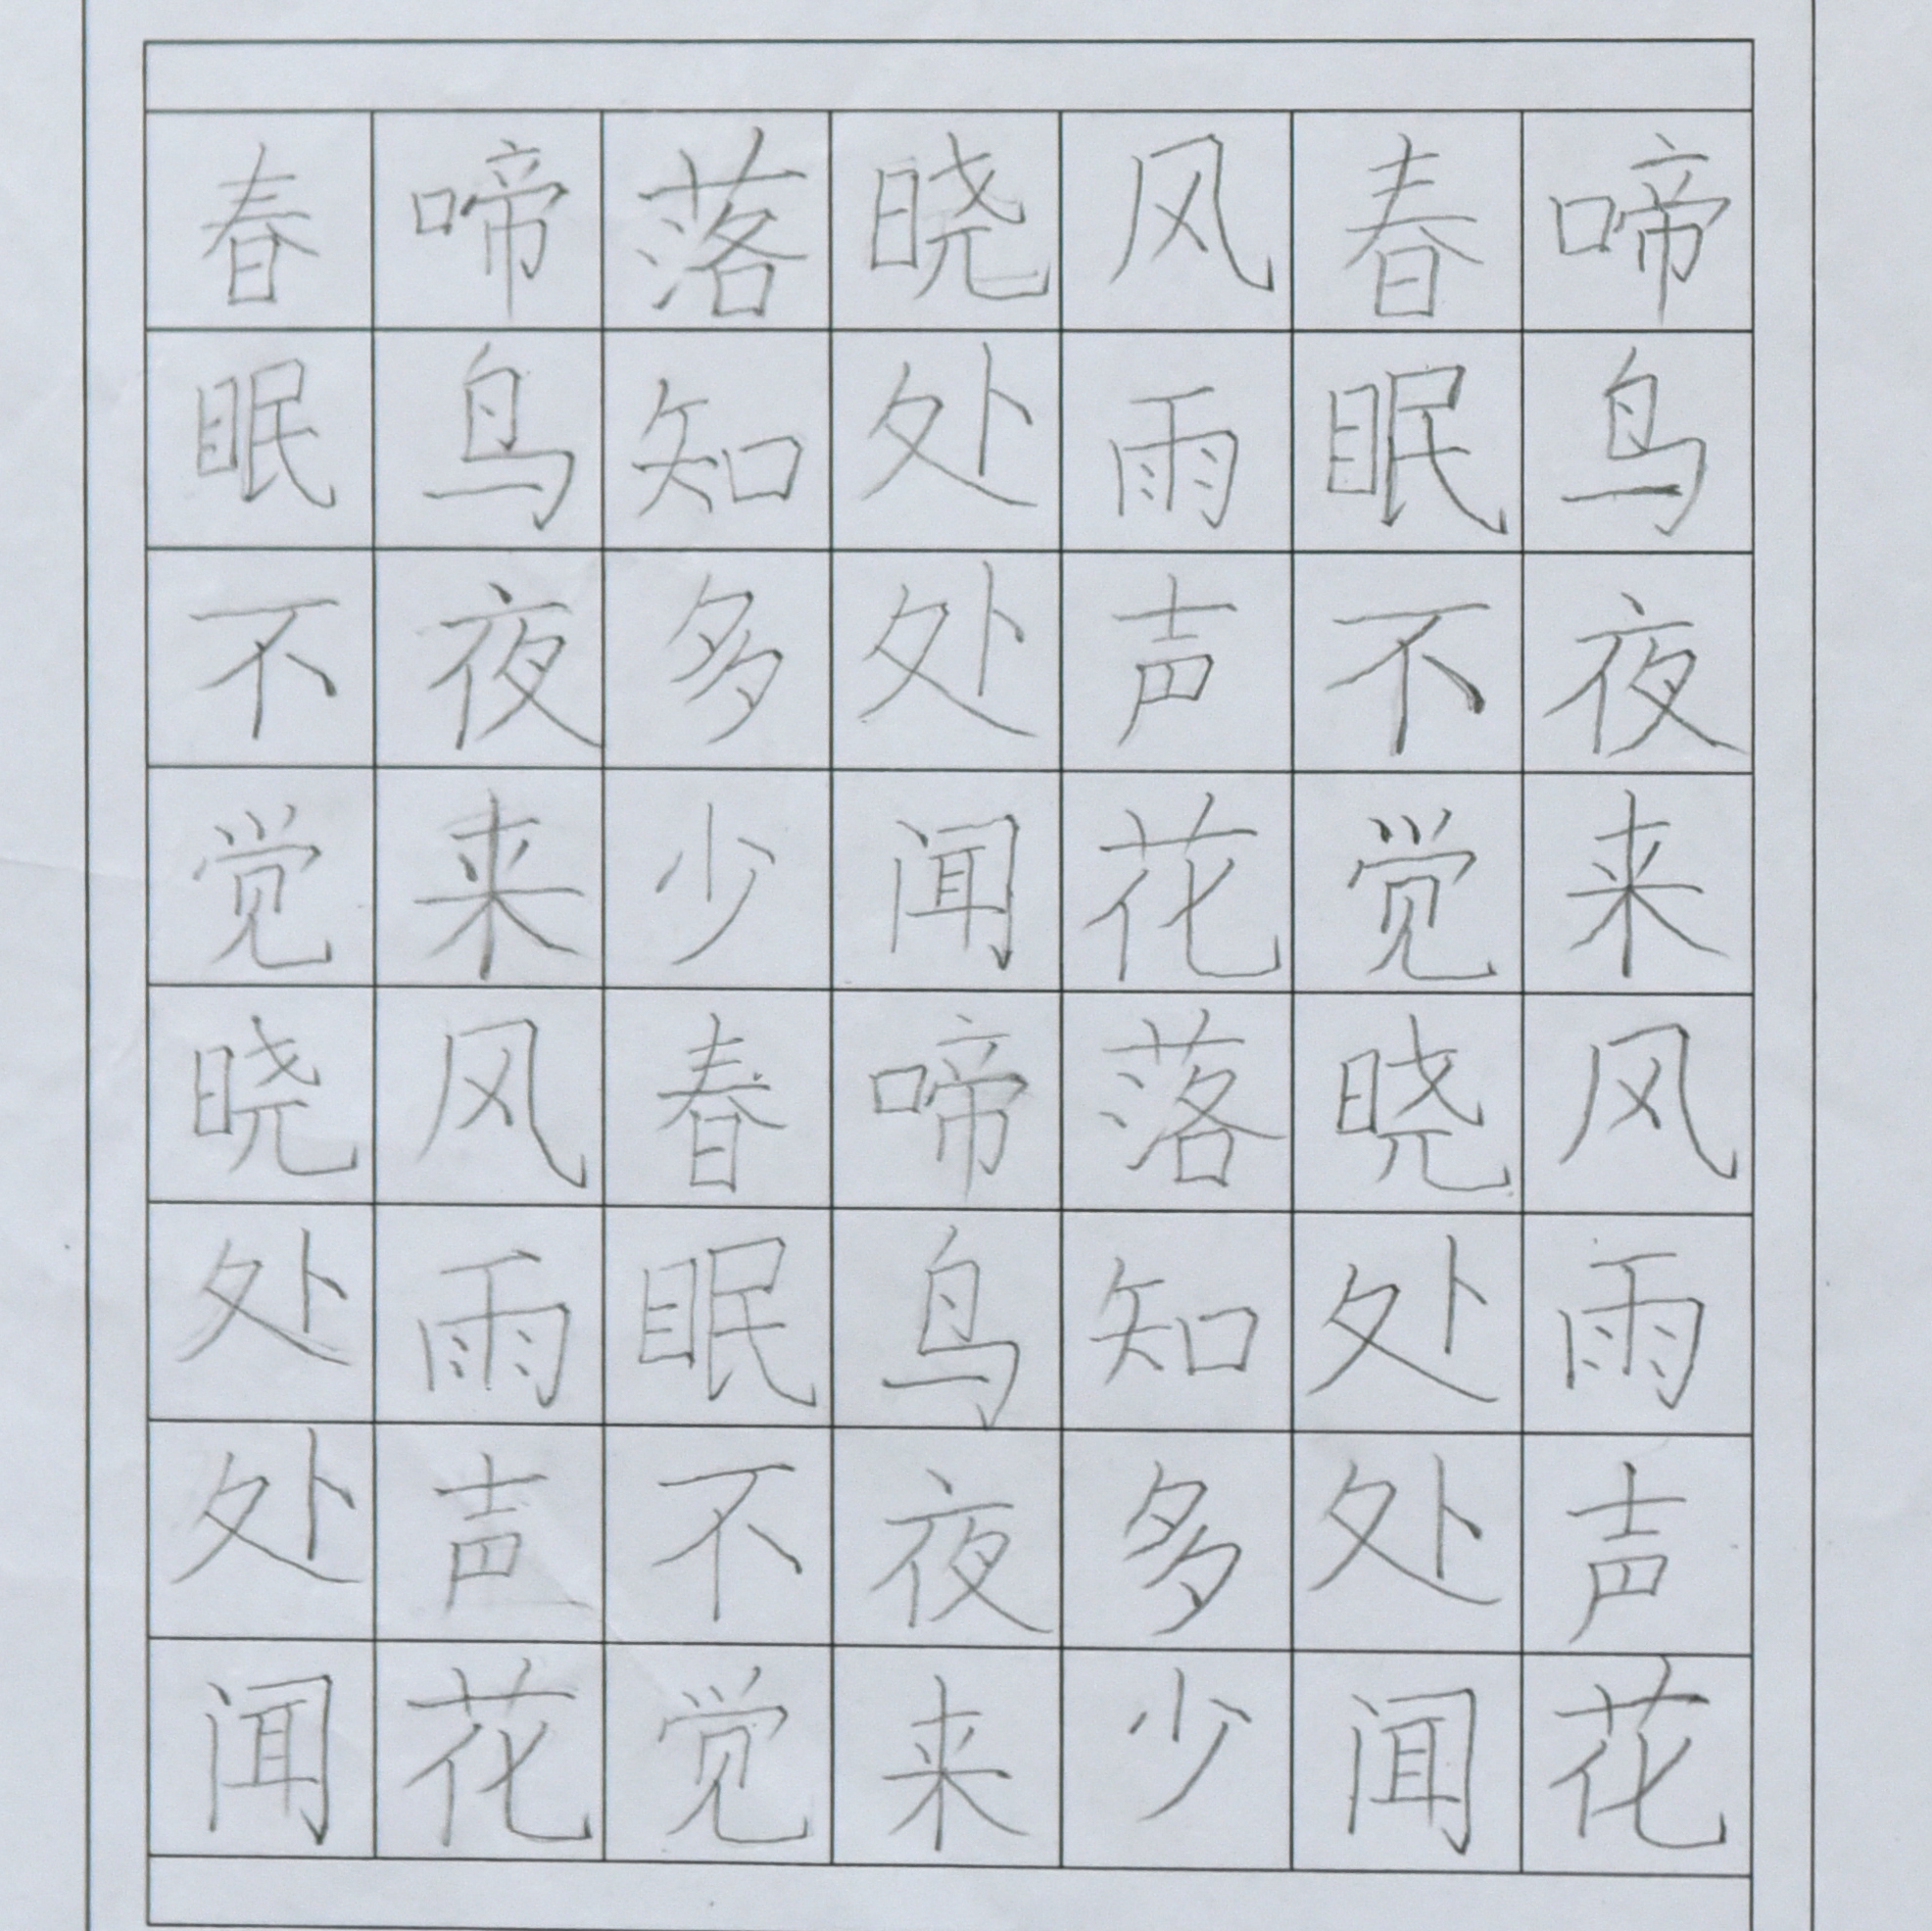 春眠不觉晓处处闻
啼鸟夜来风雨声花
落知多少春眠不觉
晓处处闻啼鸟夜来
风雨声花落知多少
春眠不觉晓处处闻
啼鸟夜来风雨声花